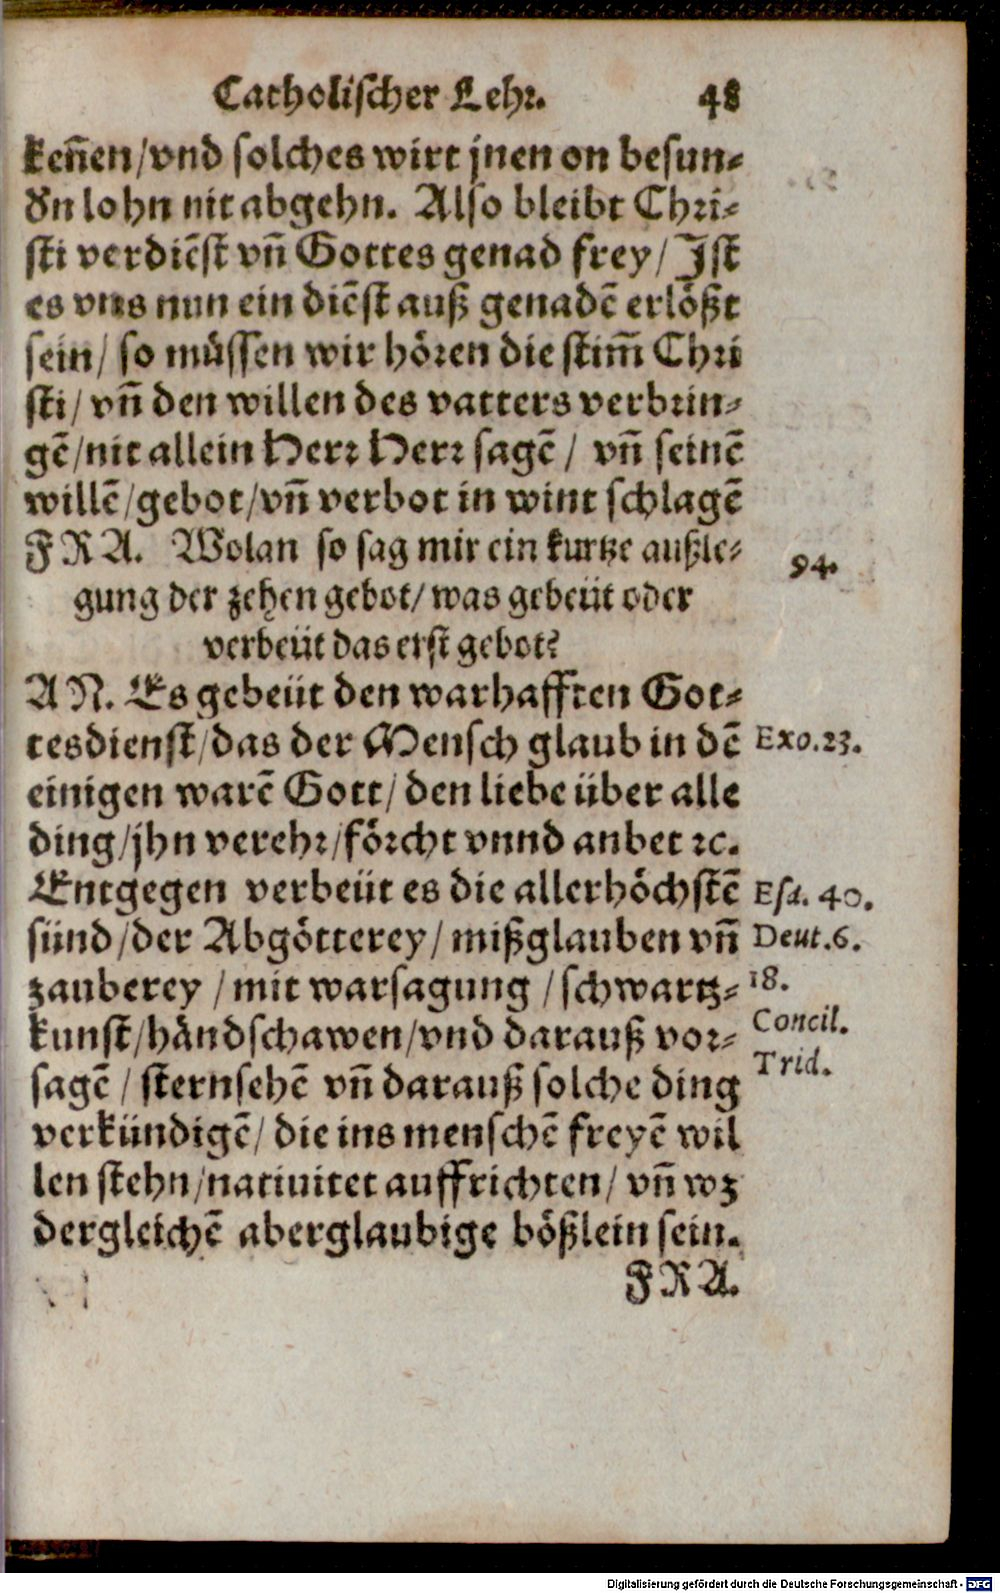 Catholischer Lehr. 48
keñen/vnd solches wirt jnen on besun-
dn lohn nit abgehn. Also bleibt Chri-
sti verdiēst vñ Gottes genad frey/ Ist
es vns nun ein diēst auß genadē erlößt
sein/ so müssen wir hören die stim̄ Chri
sti/ vñ den willen des vatters verbrin-
gē/nit allein Herr Herr sagē/ vñ seinē
willē/gebot/vñ verbot in wint schlagē
FRA. Wolan so sag mir ein kurtze außle-
gung der zehen gebot/ was gebeüt oder
verbeüt das erst gebot?
94.
AN. Es gebeüt den warhafften Got-
tesdienst/das der Mensch glaub in dē
einigen warē Gott/ den liebe über alle
ding/jhn verehr/förcht vnnd anbet ꝛc.
Entgegen verbeüt es die allerhöchstē
sünd/der Abgötterey/ mißglauben vñ
zauberey /mit warsagung /schwartz-
kunst/händschawen/vnd darauß vor-
sagē / sternsehē vñ darauß solche ding
verkündigē/ die ins menschē freyē wil
len stehn/natiuitet auffrichten/ vñ wz
dergleichē aberglaubige bößlein sein.
Exo.23.
Esa. 40.
Deut.6.
18.
Concil.
Trid.
FRA.
Digitalisierung gefördert durch die Deutsche Forschungsgemeinschaft - DFG